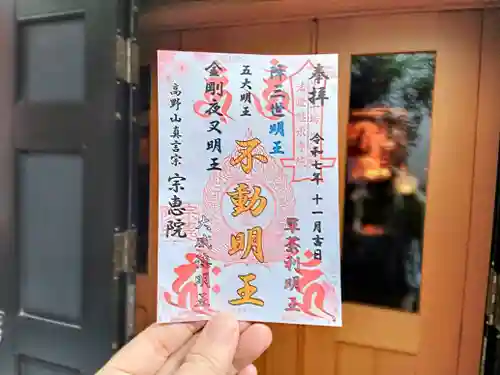 奉拝
令和七年 十一月吉日
降三世明王
軍荼利明王
不動明王
五大明王
大威徳明王
金剛夜叉明王
高野山真言宗 宗恵院